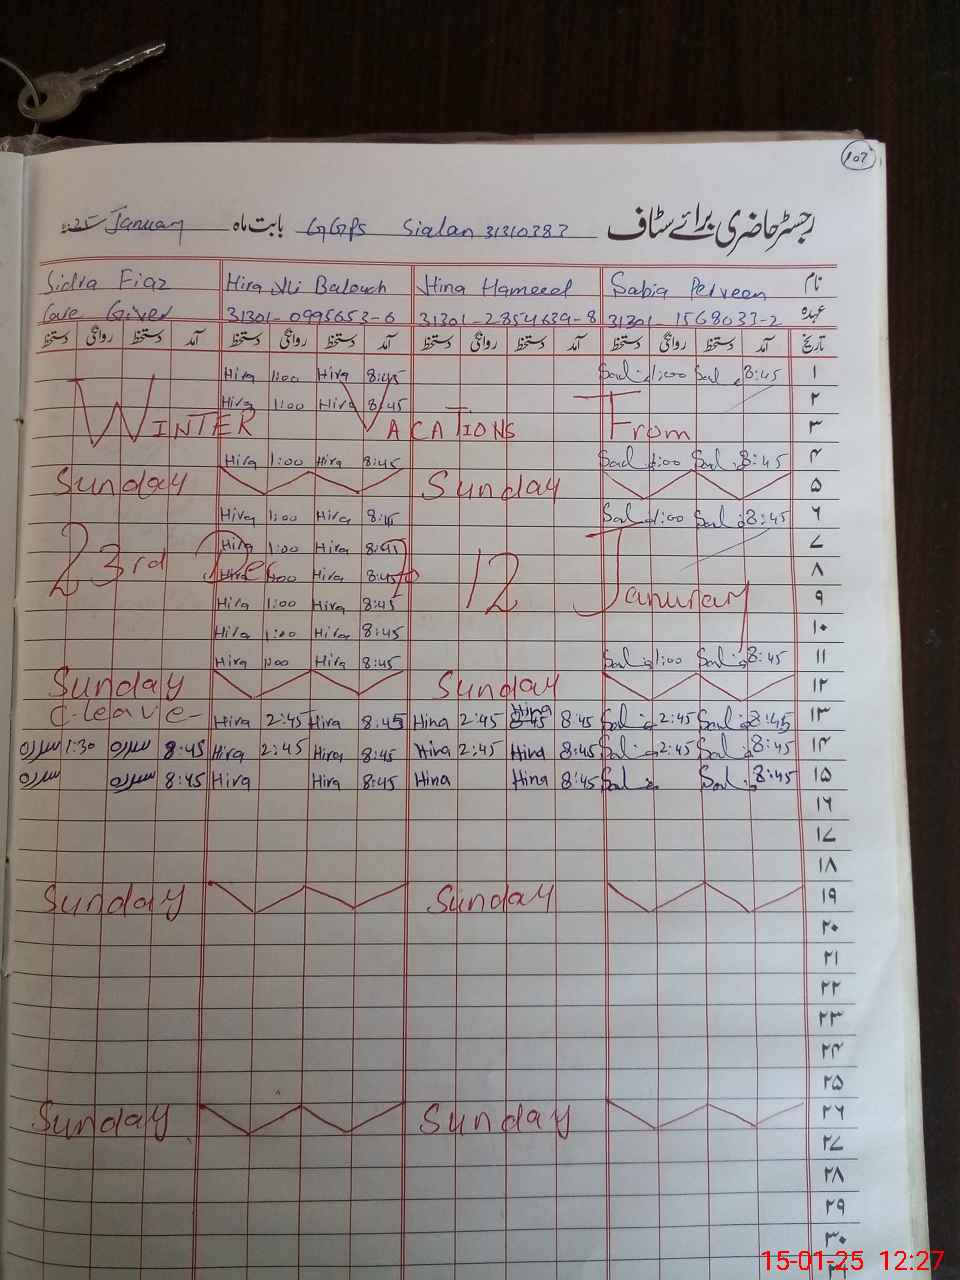 107
رجسٹر حاضری برائے سٹاف GGPS Sialan 31310383 بابت ماہ January
نام Sabia Perveen Hina Hameed Hira Ali Balouch Sidra Fiaz
عہدہ 31301-1568033-2 31301-2854639-8 31301-0995653-6 Care Giver
تاریخ آمد دستخط روانگی دستخط آمد دستخط روانگی دستخط آمد دستخط روانگی دستخط آمد دستخط روانگی دستخط
۱ 8:45 1:00 8:45 Hira 1:00 Hira
۲ 8:45 Hira 1:00 Hira
۳ WINTER VACATIONS From
۴ 8:45 1:00 8:45 Hira 1:00 Hira
۵ Sunday Sunday
۶ 8:45 1:00 8:45 Hira 1:00 Hira
۷ 8:45 Hira 1:00 Hira
۸ 23rd Dec to 12 Januray 8:45 Hira 1:00 Hira
۹ 8:45 Hira 1:00 Hira
۱۰ 8:45 Hira 1:00 Hira
۱۱ 8:45 1:00 8:45 Hira 1:00 Hira
۱۲ Sunday Sunday
۱۳ 8:45 2:45 8:45 Hina 2:45 Hina 8:45 Hira 2:45 Hira C-leave-
۱۴ 8:45 2:45 8:45 Hina 2:45 Hina 8:45 Hira 2:45 Hira 8:45 سدرہ 1:30 سدرہ
۱۵ 8:45 8:45 Hina Hina 8:45 Hira Hira 8:45 سدرہ سدرہ
۱۶
۱۷
۱۸
۱۹ Sunday Sunday
۲۰
۲۱
۲۲
۲۳
۲۴
۲۵
۲۶ Sunday Sunday
۲۷
۲۸
۲۹
۳۰
15-01-25 12:27